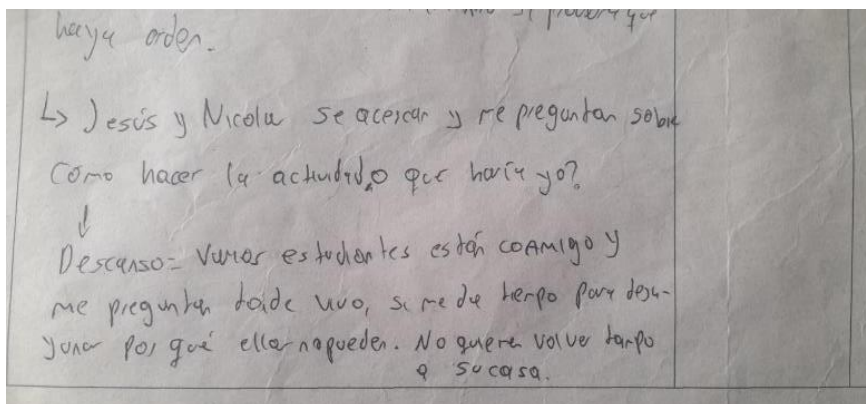 si
que
haya orden.
↳ Jesús y Nicolu se acercan y me preguntan sobre
como hacer la actividad, o que haría yo?
↓
Descanso = Varios estudiantes están conmigo y
me preguntan donde vivo, si me da tiempo para desa-
yunar por qué ellos no pueden. No quieren volver tampo
a su casa.